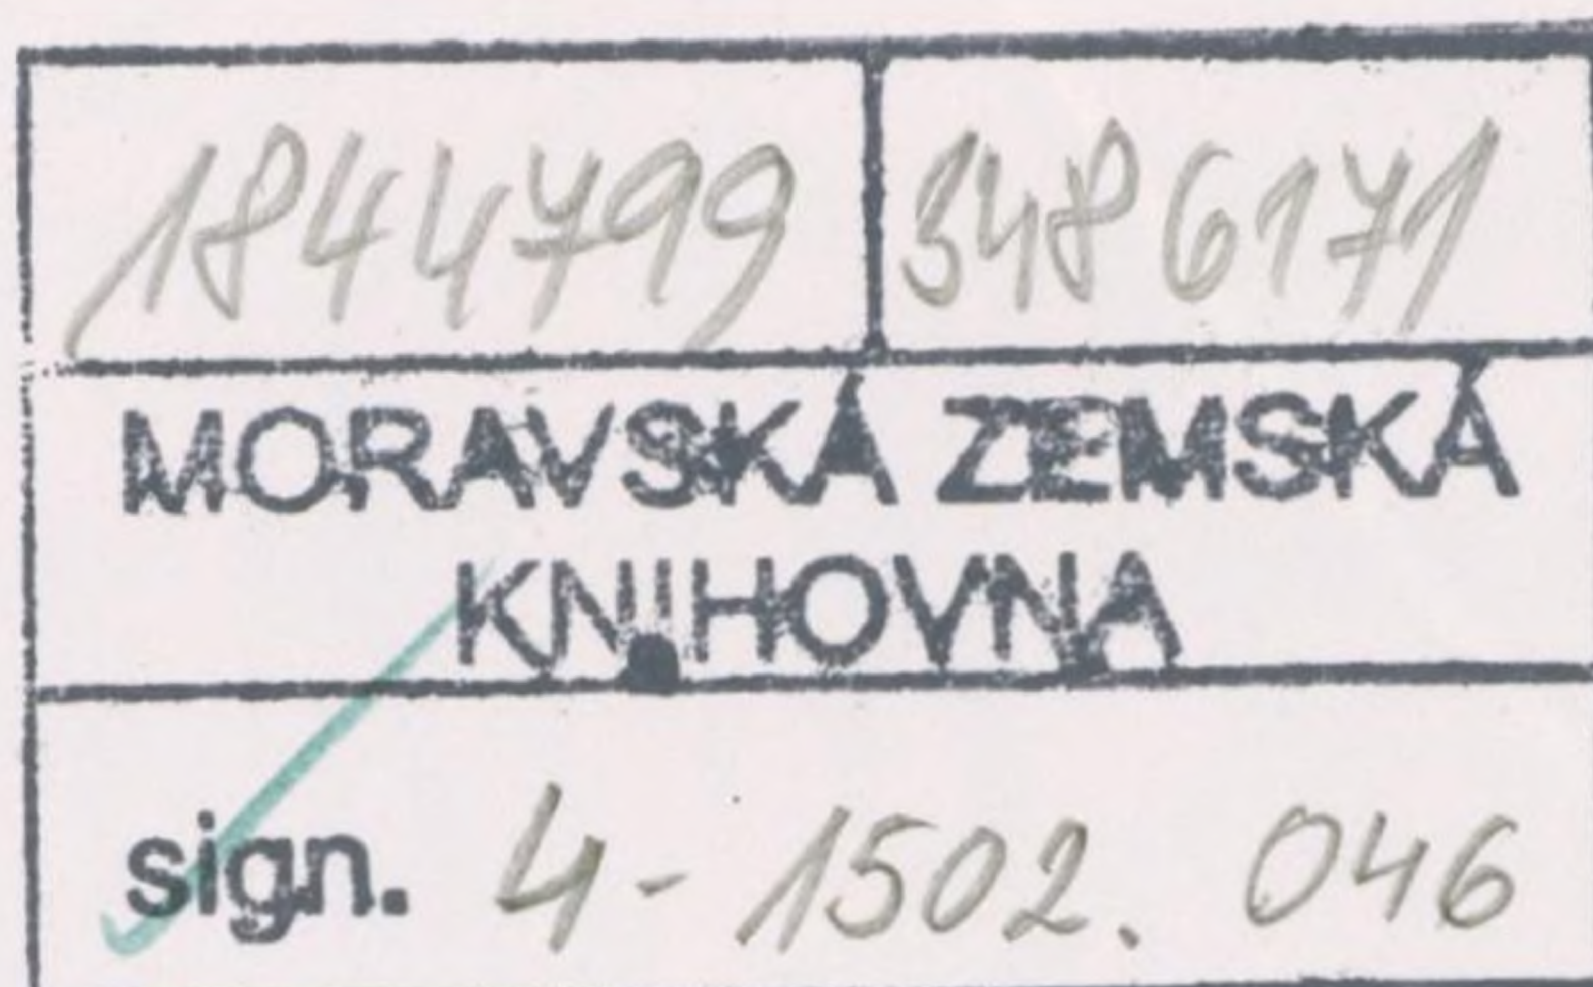 1844799 3486171
MORAVSKÁ ZEMSKÁ
KNIHOVNA
sign. 4-1502. 046